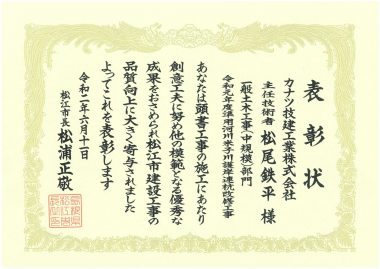 表彰状
カナツ技建工業株式会社
主任技術者 松尾鉄平 様
一般土木工事(中規模)部門
令和元年度準用河川米子川護岸連杭改修工事
あなたは頭書工事の施工にあたり
創意工夫に努め他の模範となる優秀な
成果をおさめられ松江市建設工事の
品質向上に大きく寄与されました
よってこれを表彰します
令和二年六月十一日
松江市長 松浦正敬